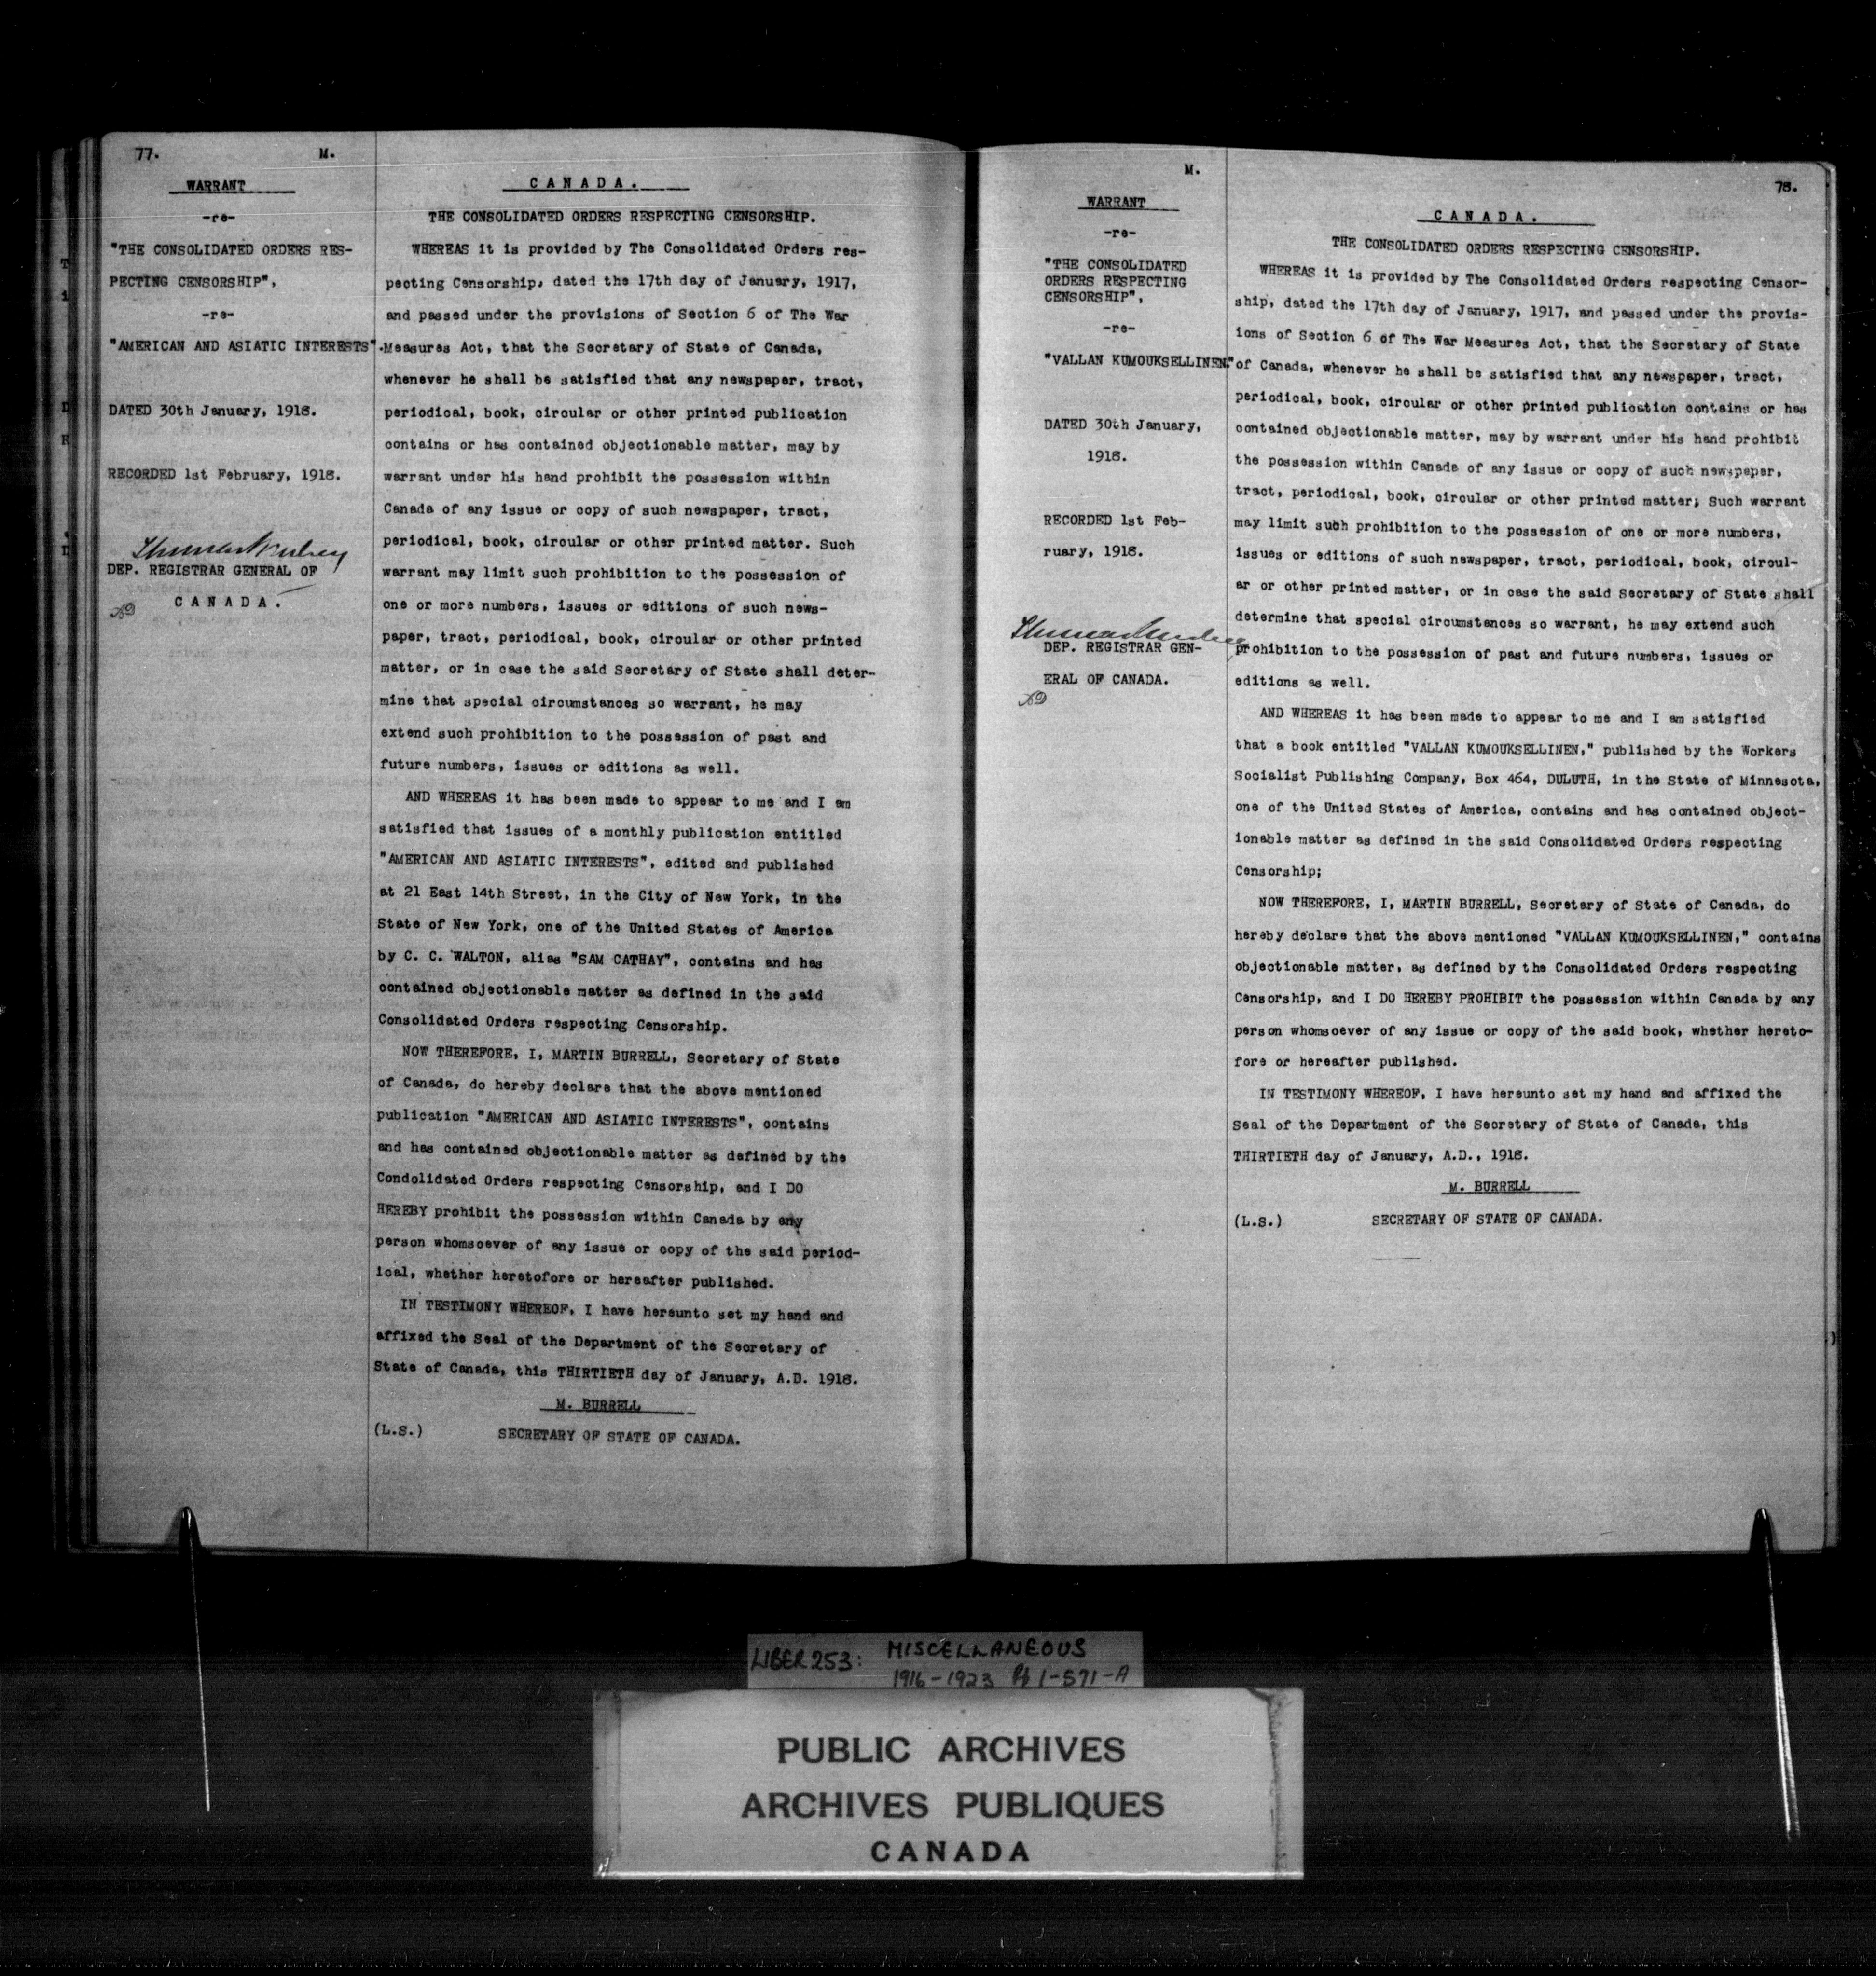 77. M.
WARRANT
-re-
"THE CONSOLIDATED ORDERS RES-
PECTING CENSORSHIP",
-re-
"AMERICAN AND ASIATIC INTERESTS".
DATED 30th January, 1918.
RECORDED 1st February, 1918.
DEP. REGISTRAR GENERAL OF
CANADA.
CANADA.
THE CONSOLIDATED ORDERS RESPECTING CENSORSHIP.
WHEREAS it is provided by The Consolidated Orders res-
pecting Censorship, dated the 17th day of January, 1917,
and passed under the provisions of Section 6 of The War
Measures Act, that the Secretary of State of Canada,
whenever he shall be satisfied that any newspaper, tract,
periodical, book, circular or other printed publication
contains or has contained objectionable matter, may by
warrant under his hand prohibit the possession within
Canada of any issue or copy of such newspaper, tract,
periodical, book, circular or other printed matter. Such
warrant may limit such prohibition to the possession of
one or more numbers, issues or editions of such news-
paper, tract, periodical, book, circular or other printed
matter, or in case the said Secretary of State shall deter-
mine that special circumstances so warrant, he may
extend such prohibition to the possession of past and
future numbers, issues or editions as well.
AND WHEREAS it has been made to appear to me and I am
satisfied that issues of a monthly publication entitled
"AMERICAN AND ASIATIC INTERESTS", edited and published
at 21 East 14th Street, in the City of New York, in the
State of New York, one of the United States of America
by C. C. WALTON, alias "SAM CATHAY", contains and has
contained objectionable matter as defined in the said
Consolidated Orders respecting Censorship.
NOW THEREFORE, I, MARTIN BURRELL, Secretary of State
of Canada, do hereby declare that the above mentioned
publication "AMERICAN AND ASIATIC INTERESTS", contains
and has contained objectionable matter as defined by the
Condolidated Orders respecting Censorship, and I DO
HEREBY prohibit the possession within Canada by any
person whomsoever of any issue or copy of the said period-
ical, whether heretofore or hereafter published.
IN TESTIMONY WHEREOF, I have hereunto set my hand and
affixed the Seal of the Department of the Secretary of
State of Canada, this THIRTIETH day of January, A.D. 1918.
M. BURRELL
(L.S.) SECRETARY OF STATE OF CANADA.
M.
WARRANT
-re-
"THE CONSOLIDATED
ORDERS RESPECTING
CENSORSHIP",
-re-
"VALLAN KUMOUKSELLINEN."
DATED 30th January,
1918.
RECORDED 1st Feb-
ruary, 1918.
DEP. REGISTRAR GEN-
ERAL OF CANADA.
78.
CANADA.
THE CONSOLIDATED ORDERS RESPECTING CENSORSHIP.
WHEREAS it is provided by The Consolidated Orders respecting Censor-
ship, dated the 17th day of January, 1917, and passed under the provis-
ions of Section 6 of The War Measures Act, that the Secretary of State
of Canada, whenever he shall be satisfied that any newspaper, tract,
periodical, book, circular or other printed publication contains or has
contained objectionable matter, may by warrant under his hand prohibit
the possession within Canada of any issue or copy of such newspaper,
tract, periodical, book, circular or other printed matter; Such warrant
may limit such prohibition to the possession of one or more numbers,
issues or editions of such newspaper, tract, periodical, book, circul-
ar or other printed matter, or in case the said Secretary of State shall
determine that special circumstances so warrant, he may extend such
prohibition to the possession of past and future numbers, issues or
editions as well.
AND WHEREAS it has been made to appear to me and I am satisfied
that a book entitled "VALLAN KUMOUKSELLINEN," published by the Workers
Socialist Publishing Company, Box 464, DULUTH, in the State of Minnesota,
one of the United States of America, contains and has contained object-
ionable matter as defined in the said Consolidated Orders respecting
Censorship;
NOW THEREFORE, I, MARTIN BURRELL, Secretary of State of Canada, do
hereby declare that the above mentioned "VALLAN KUMOUKSELLINEN," contains
objectionable matter, as defined by the Consolidated Orders respecting
Censorship, and I DO HEREBY PROHIBIT the possession within Canada by any
person whomsoever of any issue or copy of the said book, whether hereto-
fore or hereafter published.
IN TESTIMONY WHEREOF, I have hereunto set my hand and affixed the
Seal of the Department of the Secretary of State of Canada, this
THIRTIETH day of January, A.D., 1918.
M. BURRELL
(L.S.) SECRETARY OF STATE OF CANADA.
LIBER 253: MISCELLANEOUS
1916-1923 Pt 1-571-A
PUBLIC ARCHIVES
ARCHIVES PUBLIQUES
CANADA